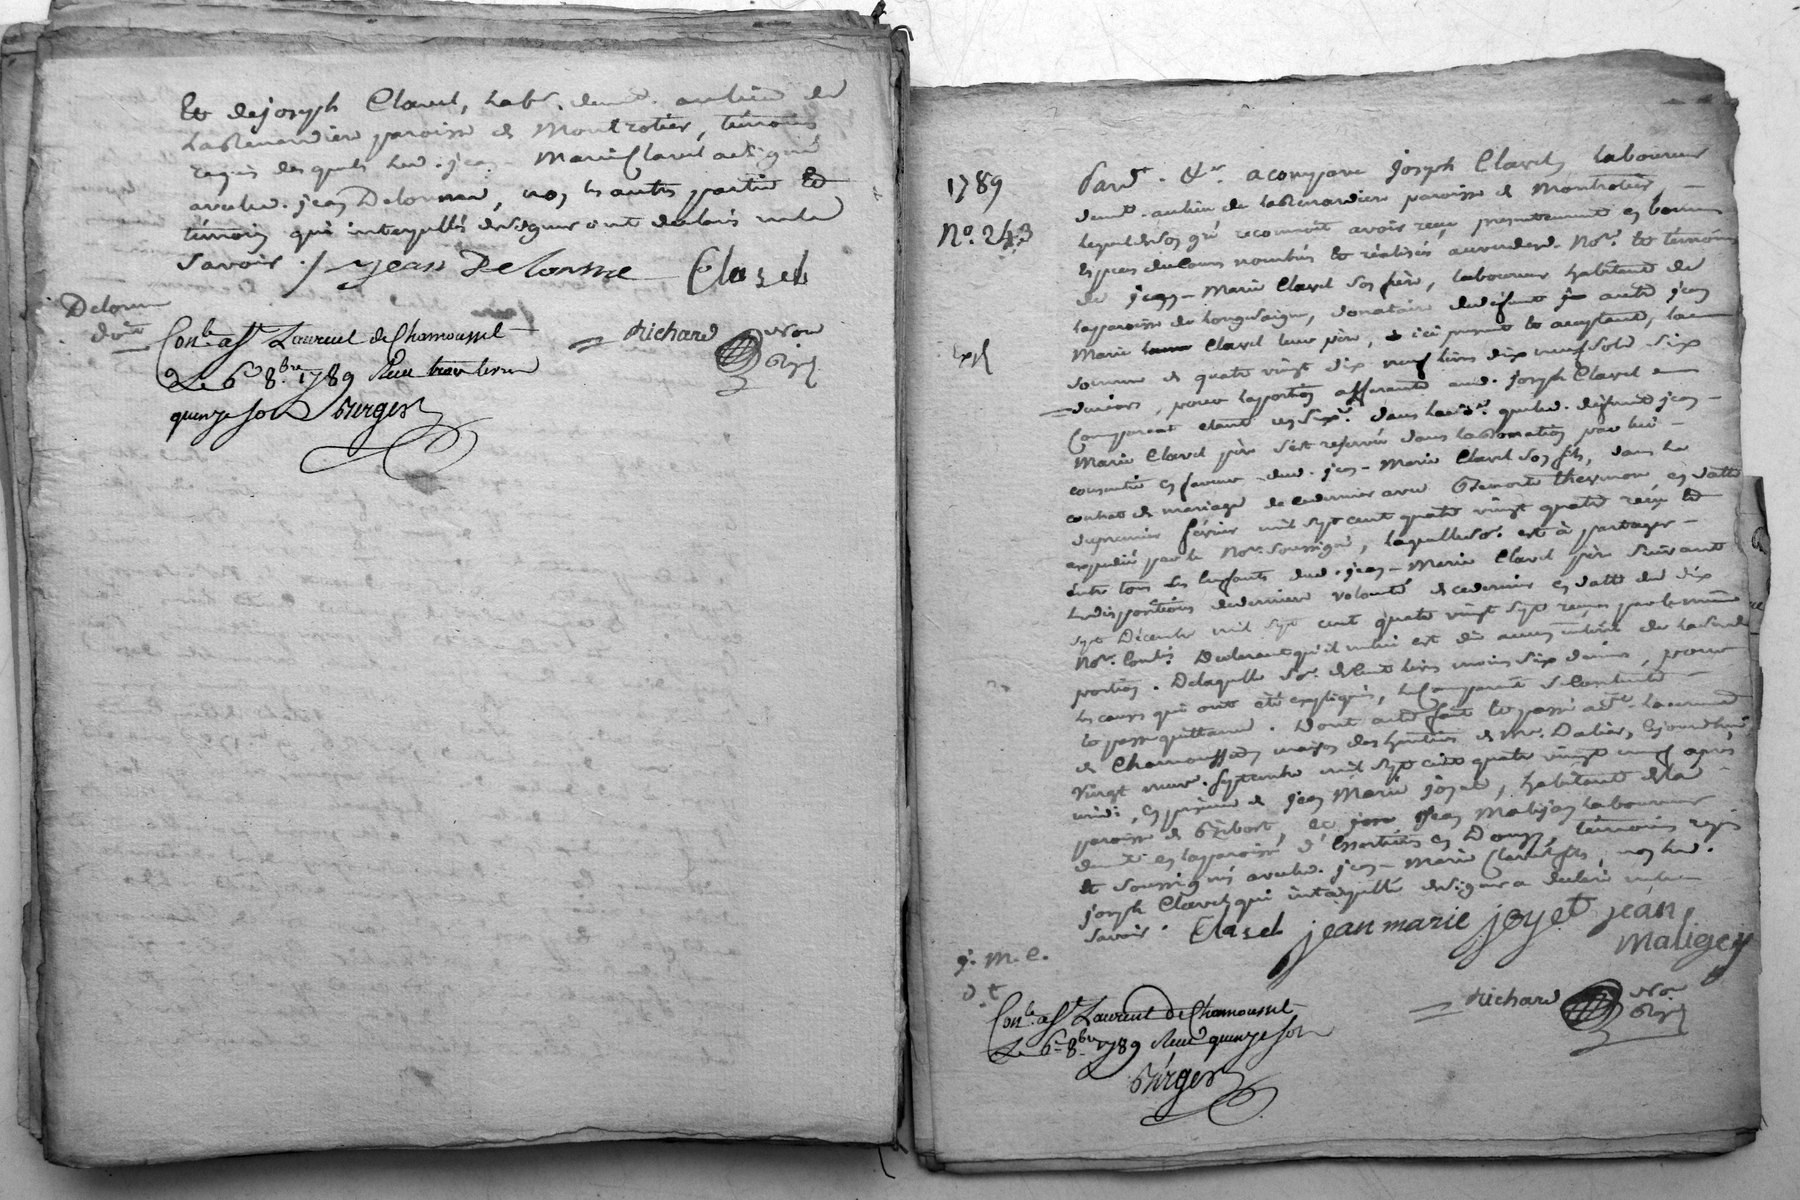 Et de joseph Clavel, labr. demt. au lieu de
la Renardiere paroisse de Montrotier, témoins
requis desquels led. jean Marie Clavel a signé
avec led. jean Delorme, non les autres parties Et
témoin qui interpellés de signer ont declaré ne le
savoir ./ jean Delorme Clavel
Delorme
doit
Conlé a St Laurent de Chamousset
Le 6 8bre 1789 Reçu
quinze sols
Richard Nore
Royl
1789
No. 243
Pardt. &r. a comparu joseph Clavel laboureur
demt. au lieu de la Renardiere paroisse de Montrotier,
lequel de son gré reconnoit avoir reçu presentement en bonnes
Especes de cours nombrés et réalisés au vu desd. Nore. et témoins
de jean-Marie Clavel son frère, laboureur habitant de
la paroisse de Longesaigne, donataire de défunt autre jean
Marie Clavel leur père, ici présent et acceptant, la
somme de quatre vingt dix neuf livres dix neuf sols six
deniers, pour la portion afferante aud. joseph Clavel
Comparant dans la que led. défunt jean-
Marie Clavel père s'est reservée dans la donation par lui
consentie en faveur dud. jean-Marie Clavel son fils, dans le
contrat de mariage de ce dernier avec en datte
du premier février mil sept cent quatre vingt quatre reçu et
expedié par le Nore. soussigné, laquelle so. est à partager
entre tous les Enfants dud. jean-Marie Clavel père suivant
les dispositions de derniere volonté de ce dernier en datte du dix
sept Décembre mil sept cent quatre vingt sept reçues par le même
Nore. Declarant qu'il ne lui est dû aucun intérêt de lad.
portion. De laquelle so. de Cent livres moins six deniers, pour
les causes qui ont été expliquées, le Comparant se contente
et passe quittance. Dont acte fait et passé
de Chamousset maison des heritiers de Mr. Dalier, Ce jourd'hui
vingt neuf Septembre mil sept cent quatre vingt neuf après
midi, En présence de jean Marie joyet, habitant de la
paroisse de Bibost, et jean Maligay laboureur
demt. en la paroisse d'Essertines en Donzy, témoins requis
et soussignés avec led. jean-Marie Clavel fils, non led.
joseph Clavel qui interpellé de signer a declaré ne le
savoir. Clavel jean marie joyet jean
Maligey
j. m. C.
d. t.
Conlé a St Laurent de Chamousset
Le 6 8bre 1789 Reçu quinze sols
Richard Nore
Royl